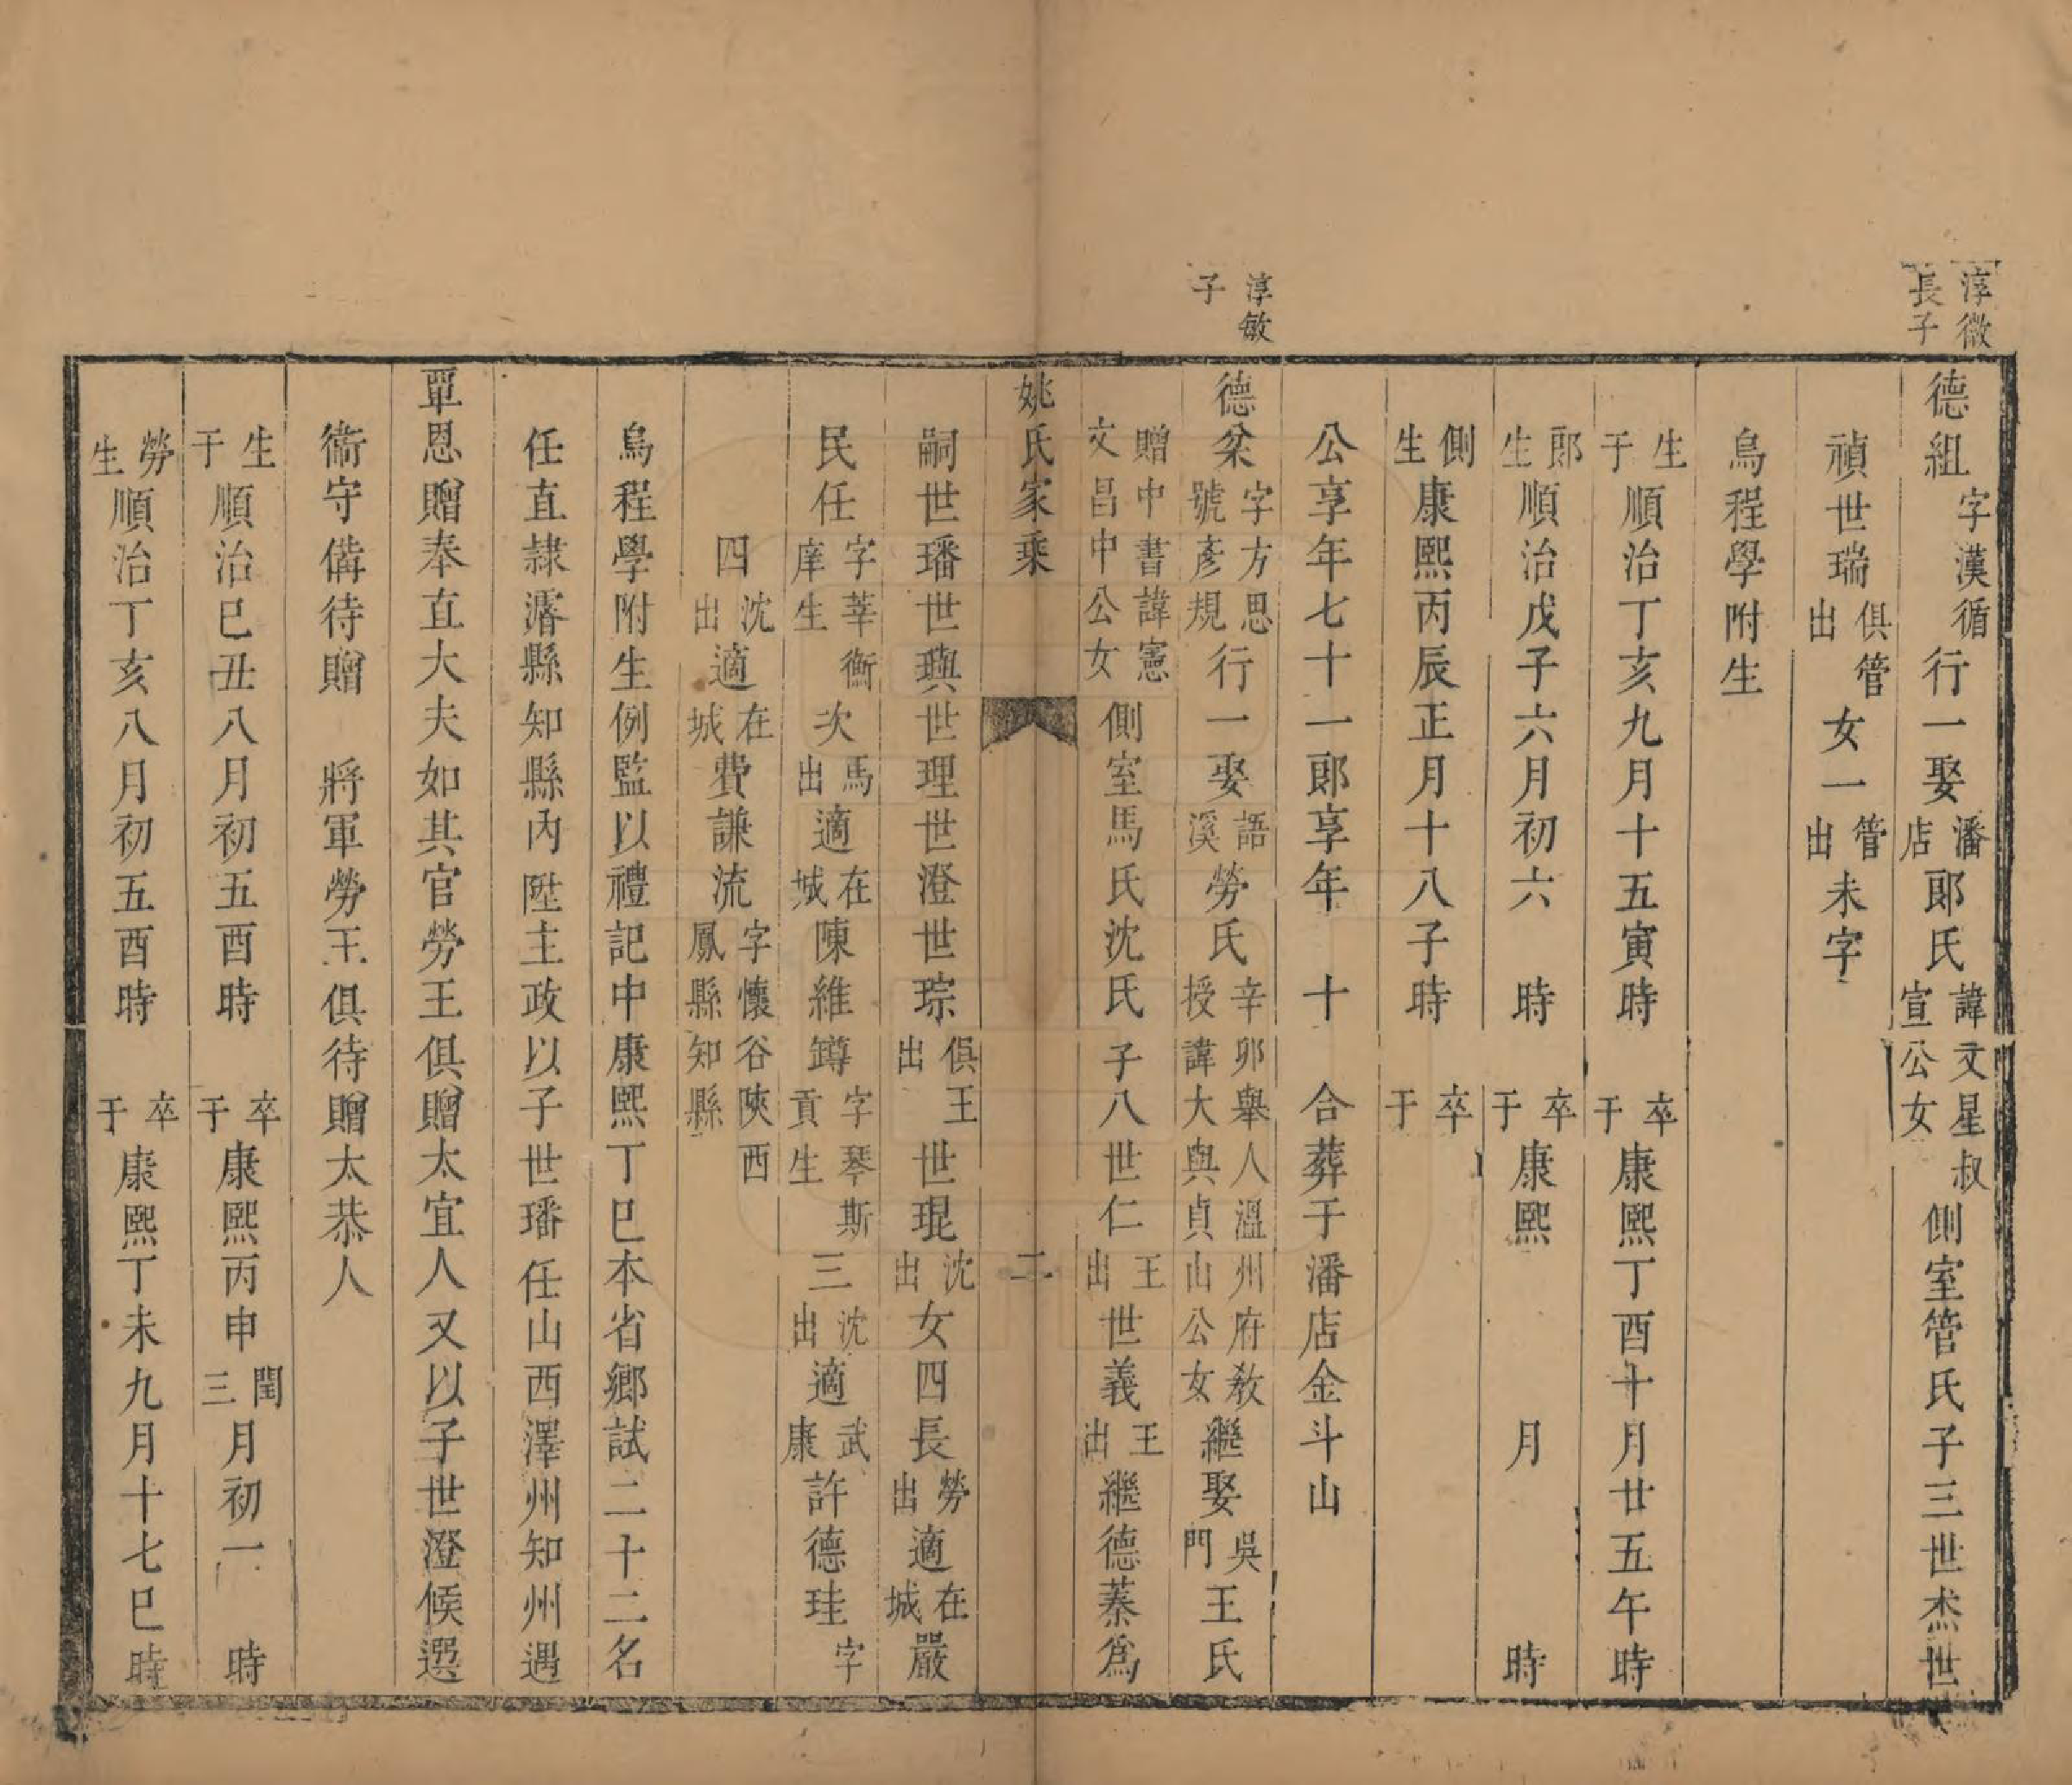 淳徵長子
德組字漢循行一娶潘店郎氏諱文星叔宣公女側室管氏子三世杰世
禎世瑞俱管出女一管出未字
烏程學附生
生于順治丁亥九月十五寅時　卒于康熙丁酉十月廿五午時
郎生順治戊子六月初六　時　卒于康熙　月　時
側生康熙丙辰正月十八子時　卒于
公享年七十一郎享年　十　合葬于潘店金斗山
淳敏子
德棻字方思號彥規行一娶語溪勞氏辛卯舉人溫州府教授諱大與貞山公女繼娶吳門王氏
贈中書諱憲文昌中公女側室馬氏沈氏子八世仁王出世義王出繼德蓁爲
姚氏家乘　二
嗣世璠世璵世理世澄世琮俱王出世琨沈出女四長勞出適在城嚴
民任字莘衡庠生次馬出適在城陳維罇字琴斯貢生三沈出適武康許德珪字
四沈出適在城費謙流字懷谷陝西鳳縣知縣
烏程學附生例監以禮記中康熙丁巳本省鄉試二十二名
任直隸濬縣知縣內陞主政以子世璠任山西澤州知州遇
覃恩贈奉直大夫如其官勞王俱贈太宜人又以子世澄候選
衞守備待贈　將軍勞王俱待贈太恭人
生于順治己丑八月初五酉時　卒于康熙丙申閏三月初一　時
勞生順治丁亥八月初五酉時　卒于康熙丁未九月十七巳時